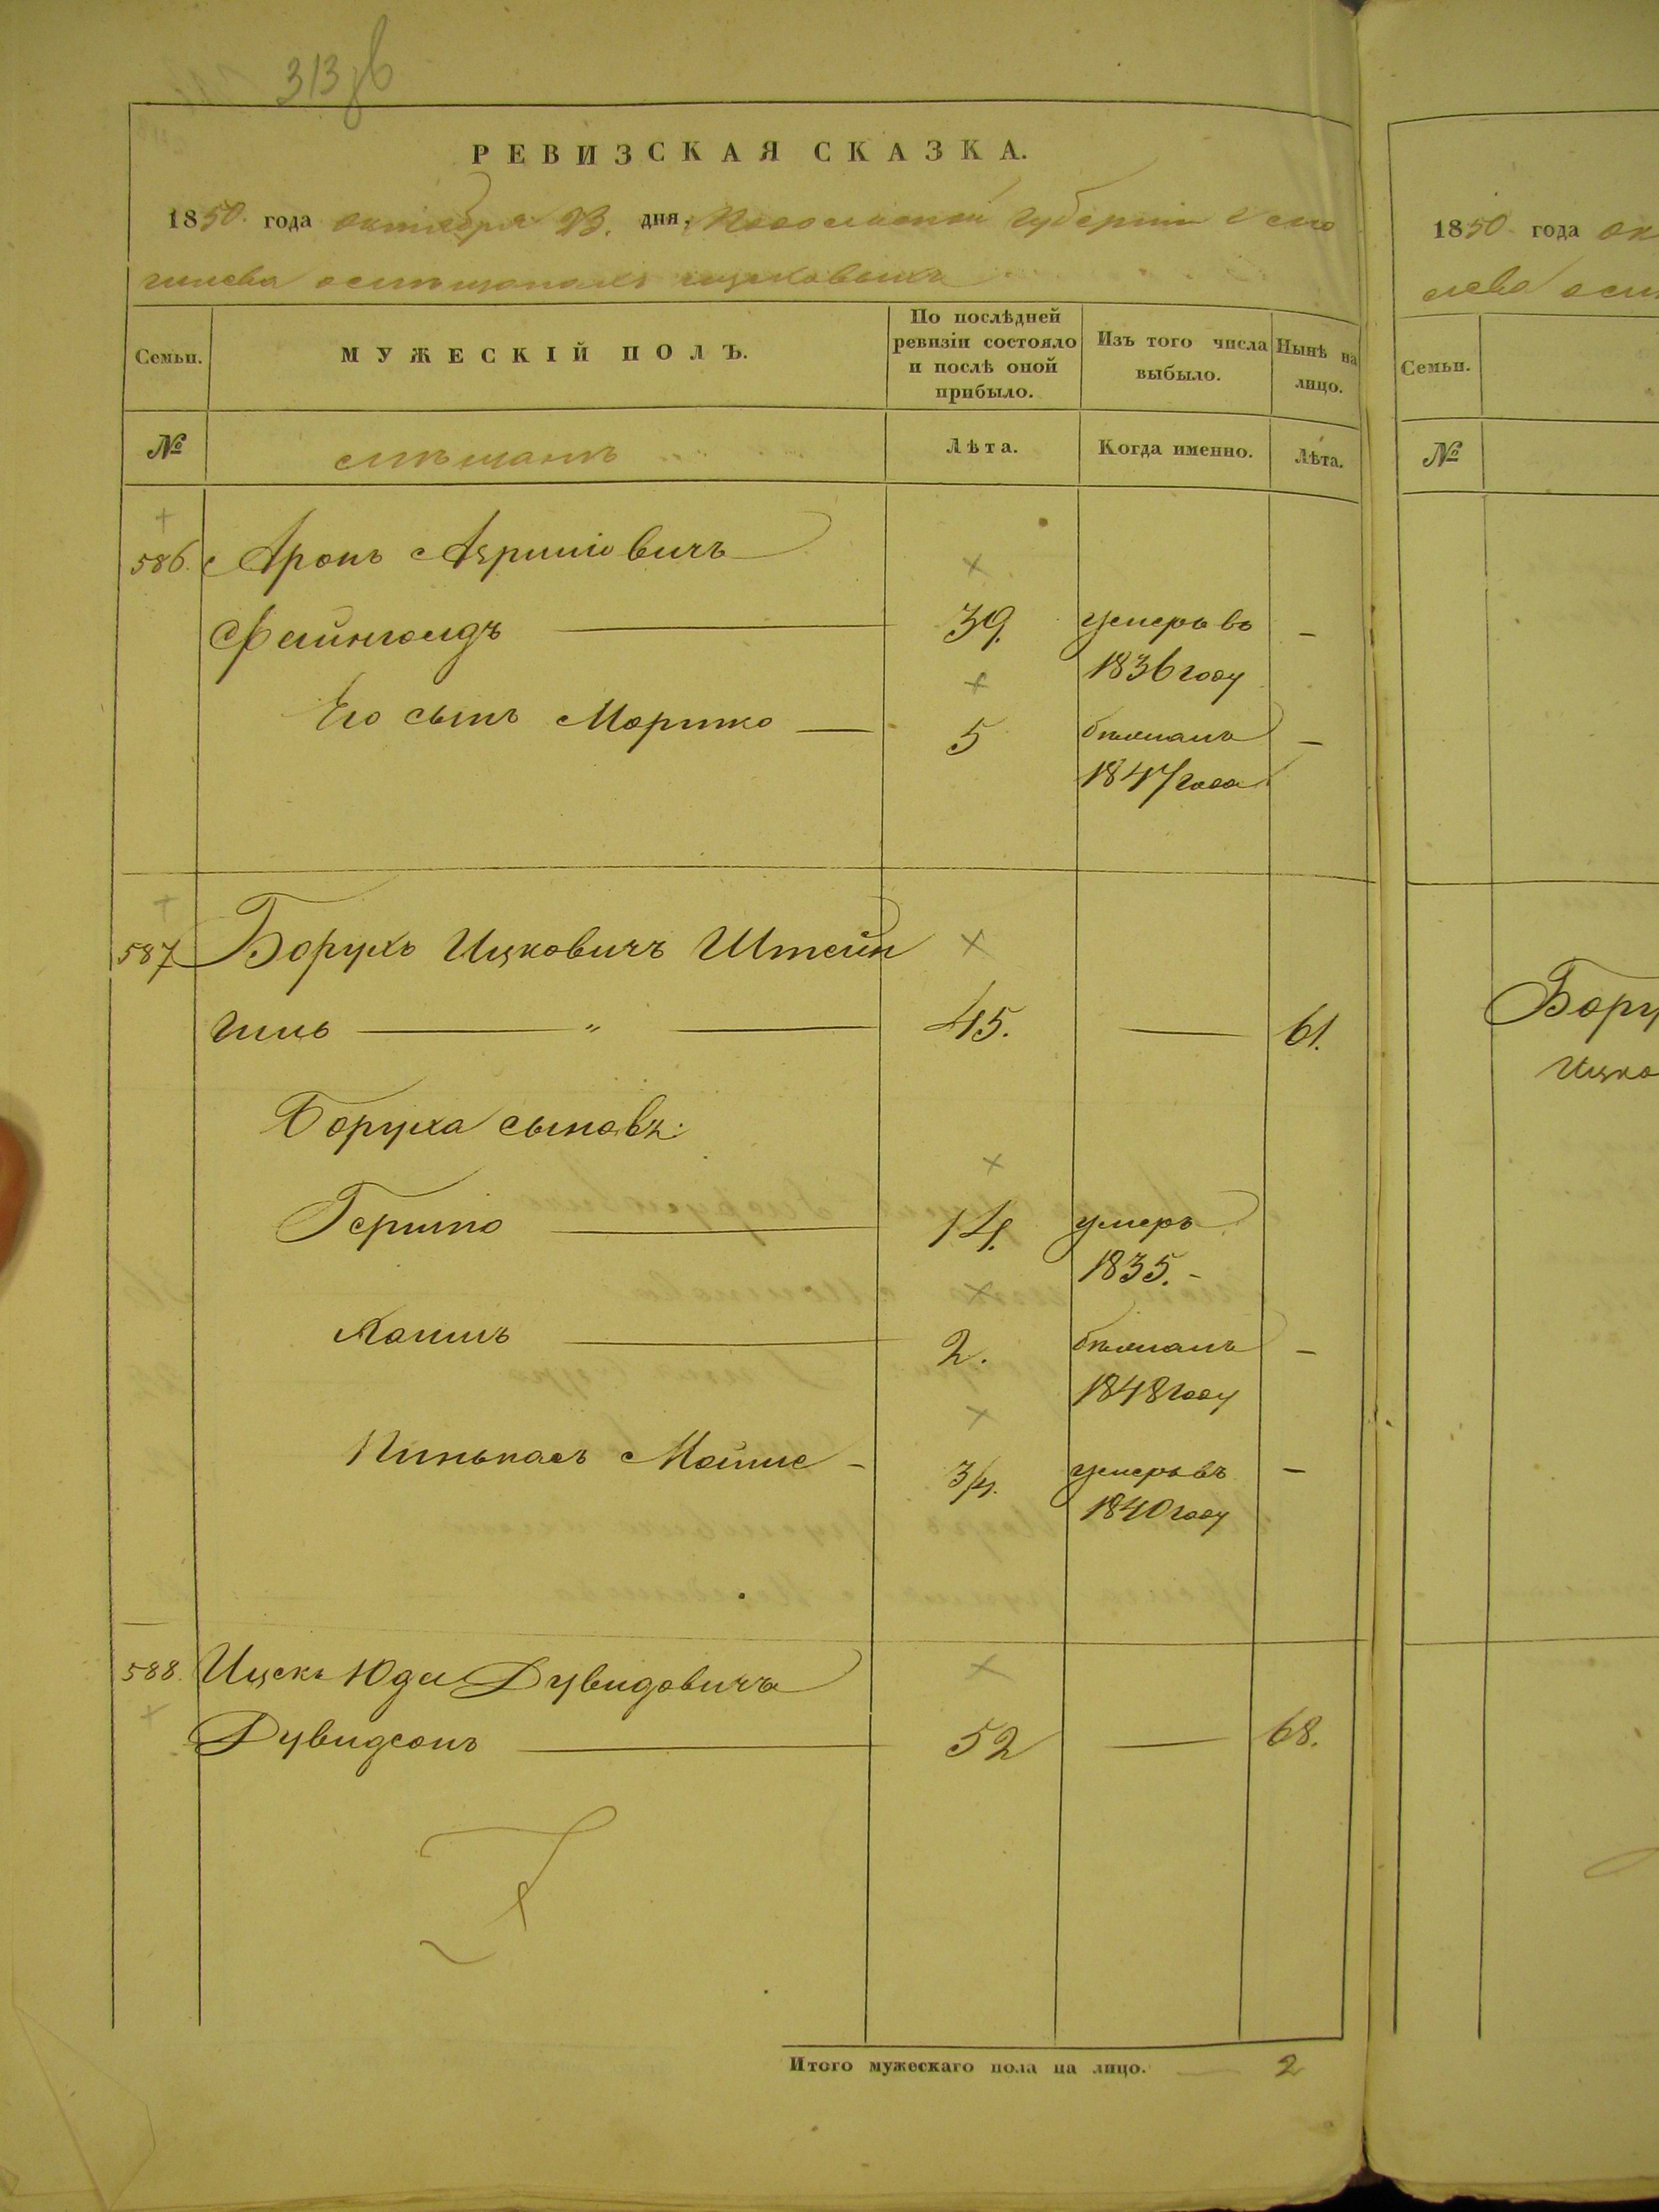 313 об
РЕВИЗСКАЯ СКАЗКА.
1850 года октября 23. дня, Подольской губернии г. Мо
гилева о мѣщанахъ
Семьи.
МУЖЕСКІЙ ПОЛЪ.
По послѣдней ревизіи состояло и послѣ оной прибыло.
Изъ того числа выбыло.
Нынѣ на лицо.
№
мѣщанъ
Лѣта.
Когда именно.
Лѣта.
586. Аронъ Авришіовичъ
Фаингольдъ 39. умеръ въ –
1836 году
Его сынъ Моршко 5 бѣжалъ –
1847 года
587 Борухъ Ицковичъ Штейн
гиль " 45. 61.
Боруха сыновъ:
Гершко 14. умеръ
1835. -
Хаимъ 2. бѣжалъ –
1848 году
Пинькасъ Мойше - 3/4. умеръ въ –
1840 году
588. Ицекъ Юда Дувидовичъ
Дувидсонъ 52 68.
Итого мужескаго пола на лицо. 2
1850 года ок
лева о мѣ
Семьи.
№
Бору
Ицко